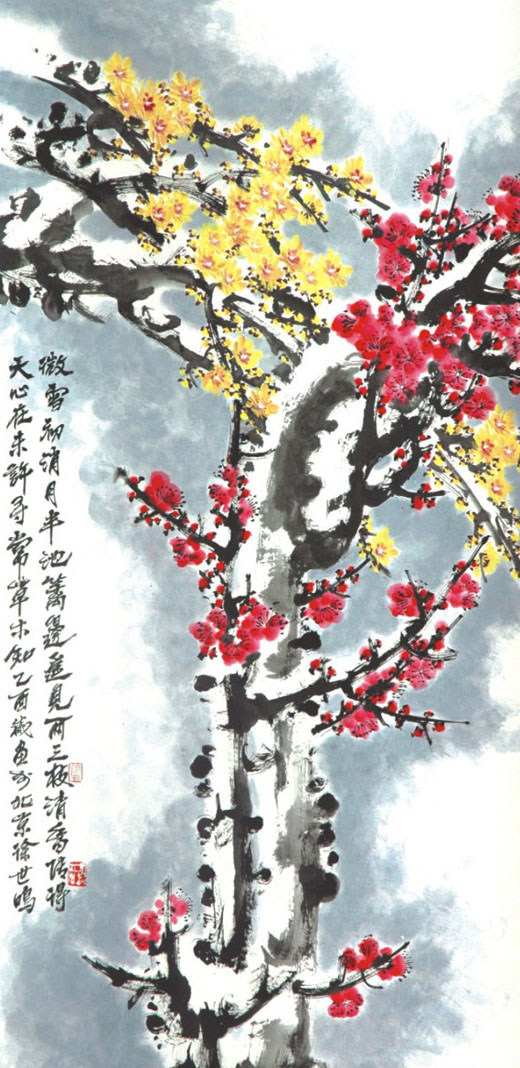 微雪初消月半池篱边遥见两三枝清香传得
天心在未许寻常草木知乙酉岁画于北京徐世鸣